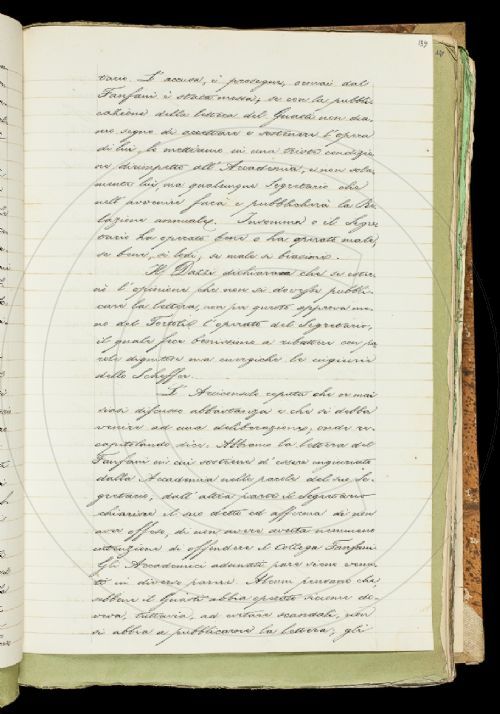 139
tario. L'accusa, ei prosegue, ormai dal
Fanfani è stata mossa; se con la pubbli-
cazione della lettera del Guasti non dia-
mo segno di accettare e sostenere l'opera
di lui, lo mettiamo in una trista condizio-
ne dirimpetto all'Accademia, e non sola-
mente lui, ma qualunque Segretario che
nell'avvenire farà e pubblicherà la Re-
lazione annuale. Insomma o il Segre-
tario ha operato bene o ha operato male,
se bene, si lodi, se male si biasimi.
Il Dazzi dichiara che se ester-
nò l'opinione che non si dovesse pubbli-
care la lettera, non per questo approva me-
no del Tortoli l'operato del Segretario,
il quale fece benissimo a ributtare con pa-
role dignitose ma energiche le ingiurie
dello Scheffer.
L'Arciconsolo reputa che ormai
siasi discusso abbastanza e che si debba
venire ad una deliberazione, onde ri-
capitolando dice. Abbiamo la lettera del
Fanfani in cui sostiene d'essere ingiuriato
dalla Accademia nelle parole del suo Se-
gretario; dall'altra parte il Segretario
chiarisce il suo detto ed afferma di non
aver offeso, di non avere avuta nemmeno
intenzione di offendere il Collega Fanfani.
Gli Accademici adunati pare sieno venu-
ti in diverso parere. Alcuni pensano che
sebbene il Guasti abbia operato siccome do-
veva, tuttavia, ad evitare scandali, non
si abbia a pubblicare la lettera; gli